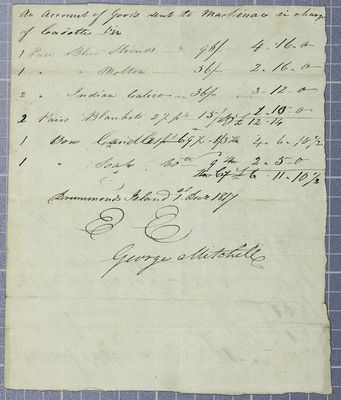 An Account of Goods sent to Mackinac in charge
of Cadotte Viz
1 Piece Blue Strouds 96/ 4.16.0
1 " " Molton 36/ 2.16.0
2 " Indian Calico 36/ 3.12.0
2 Pairs Blankets 2½ pt 15/ 1.10.0
12.14
1 Box Candles 69 4.6.10½
1 " Soap 60 lb 9 2.5.0
6.11.10½
Drummond Island 1817
E E
George Mitchell